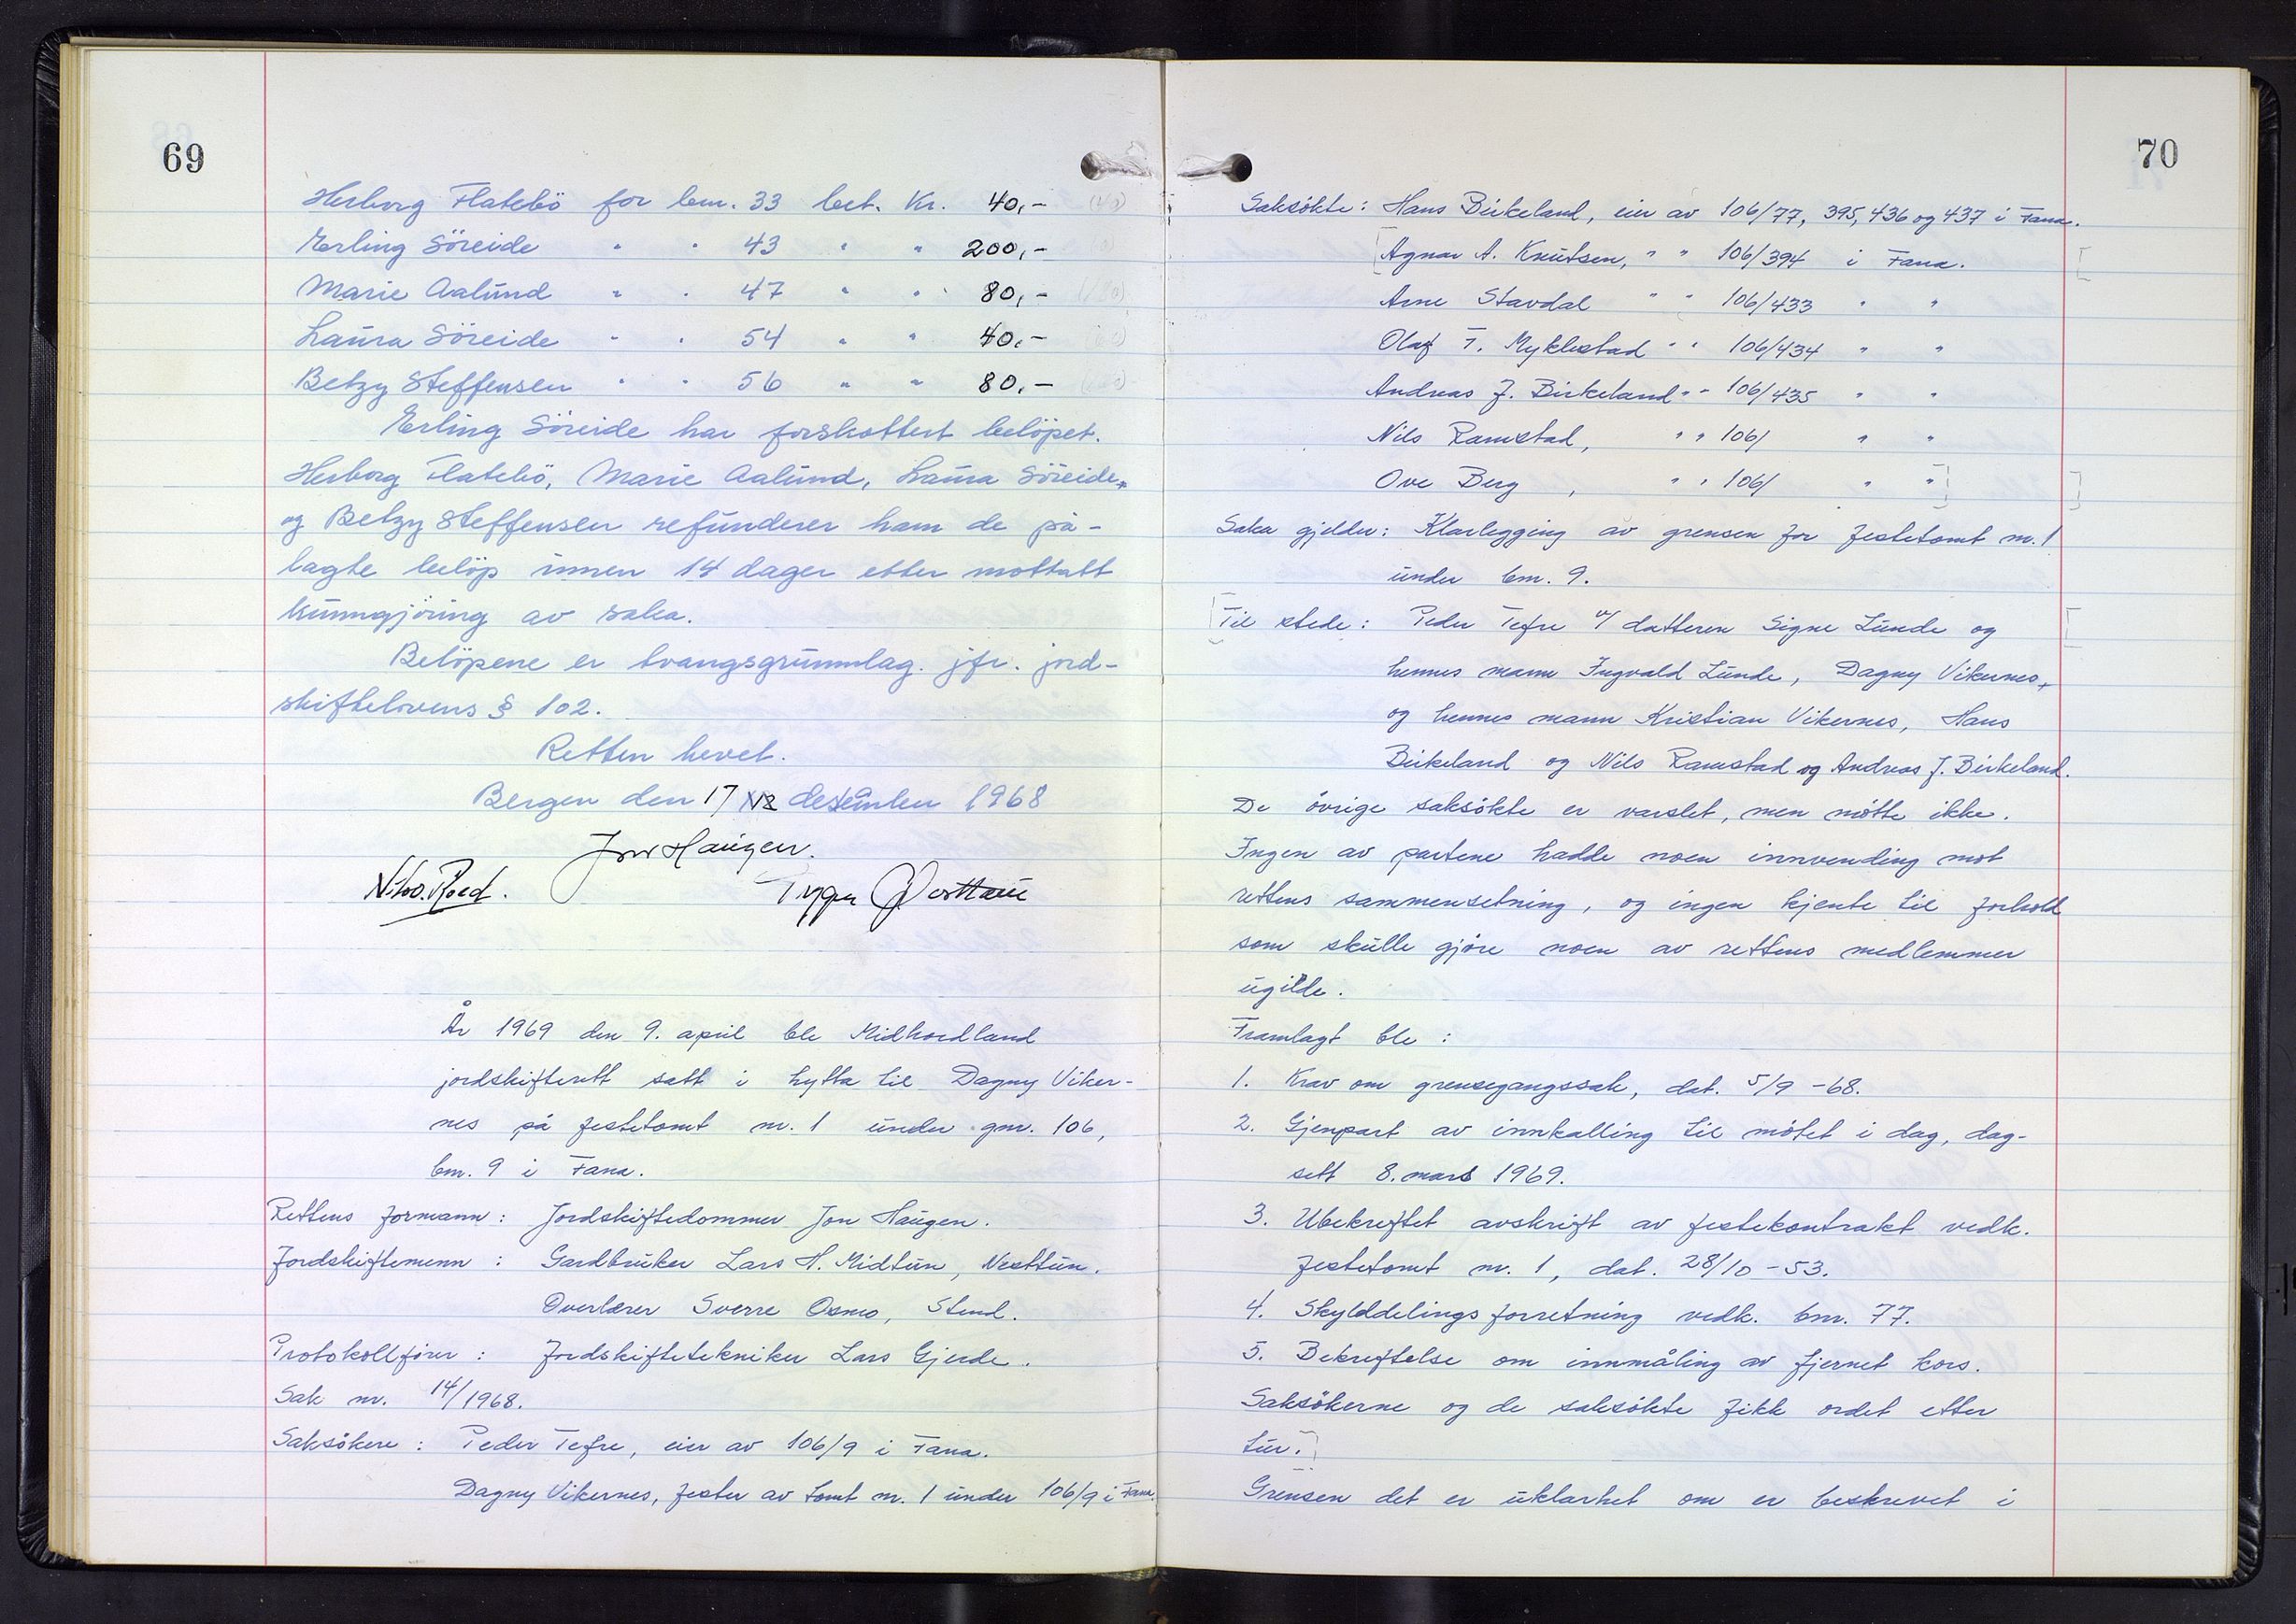 69
Herborg Flatebö for bnr. 33 bet. Kr. 40,-
Erling Söreide " " 43 " " 200,-
Marie Aalund " " 47 " " 80,-
Laura Söreide " " 54 " " 40,-
Betzy Steffensen " " 56 " " 80,-
Erling Söreide har forskottert belöpet.
Herborg Flatebö, Marie Aalund, Laura Söreide
og Betzy Steffensen refunderer ham de på-
lagte belöp innen 14 dager etter mottatt
kunngjöring av saka.
Belöpene er tvangsgrunnlag. jfr. jord-
skiftelovens § 102.
Retten hevet.
Bergen den 17 desember 1968
Jon Haugen.
Nils O. Roed.
År 1969 den 9. april ble Midhordland
jordskifterett satt i hytta til Dagny Viker-
nes på festetomt nr. 1 under gnr. 106,
bnr. 9 i Fana.
Rettens formann: Jordskiftedommer Jon Haugen.
Jordskiftemenn: Gardbruker Lars H. Midtun, Nesttun.
Overlærer Sverre Osmo, Stend.
Protokollfører: Jordskiftetekniker Lars Gjerde.
Sak nr. 14/1968.
Saksökere: Peder Tefre, eier av 106/9 i Fana.
Dagny Vikernes, fester av tomt nr. 1 under 106/9 i Fana.
70
Saksökte: Hans Birkeland, eier av 106/77, 395, 436 og 437 i Fana.
[Agnar A. Knutsen, " " 106/394 i Fana.
Arne Stavdal " " 106/433 " "
Olaf T. Myklestad " " 106/434 " "
Andreas J. Birkeland " " 106/435 " "
Nils Ramstad, " " 106/ " "
Ove Berg , " " 106/ " "]
Saka gjelder: Klarlegging av grensen for festetomt nr. 1
under bnr. 9.
[Til stede: Peder Tefre v/ datteren Signe Lunde og
hennes mann Ingvald Lunde, Dagny Vikernes
og hennes mann Kristian Vikernes, Hans
Birkeland og Nils Ramstad og Andreas J. Birkeland.
De övrige saksökte er varslet, men mötte ikke.
Ingen av partene hadde noen innvending mot
rettens sammensetning, og ingen kjente til forhold
som skulle gjöre noen av rettens medlemmer
ugilde.
Framlagt ble:
1. Krav om grensegangssak, dat. 5/9 -68.
2. Gjenpart av innkalling til mötet i dag, dag-
sett 8. mars 1969.
3. Ubekreftet avskrift av festekontrakt vedk.
festetomt nr. 1, dat. 28/10 -53.
4. Skylddelingsforretning vedk. bnr. 77.
5. Bekreftelse om innmåling av fjernet kors.
Saksökerne og de saksökte fikk ordet etter
tur.]
Grensen det er uklarhet om er beskrevet i